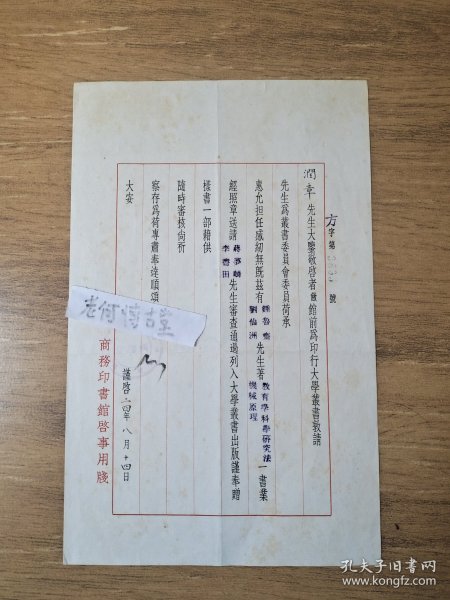 方字第 號
潤章先生大鑒敬啓者敝館前爲印行大學叢書敦請
先生爲叢書委員會委員荷承
惠允担任感紉無既茲有
鍾魯齋
劉仙洲
先生著
教育學科學研究法
機械原理
一書業
經照章送請
蔣夢麟
李書田
先生審查通過列入大學叢書出版謹奉贈
樣書一部藉供
隨時審核尚祈
察存爲荷專肅奉達順頌
大安
謹啓 二四年八月十四日
商務印書館啓事用牋
老何博古堂
孔夫子旧书网
www.kongfz.com